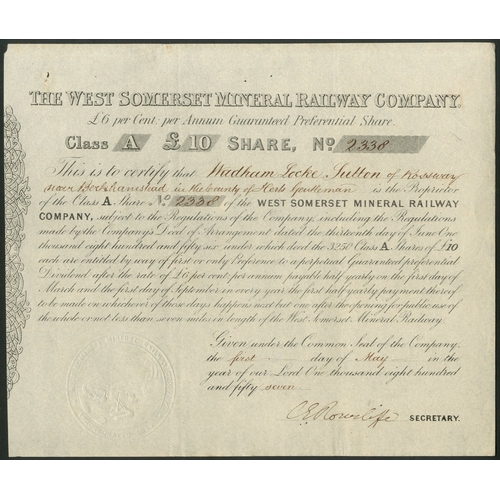 THE WEST SOMERSET MINERAL RAILWAY COMPANY.
£6 per Cent, per Annum Guaranteed Preferential Share.
Class A £10 SHARE, No 2338
This is to certify that Wadham Locke Sutton of Rossway
near Berkhamstead in the County of Herts Gentleman is the Proprietor
of the Class A Share No. 2338 of the WEST SOMERSET MINERAL RAILWAY
COMPANY, subject to the Regulations of the Company, including the Regulations
made by the Company's Deed of Arrangement dated the thirteenth day of June One
thousand eight hundred and fifty six under which deed the 3250 Class A Shares of £10
each are entitled by way of first or only Preference to a perpetual Guaranteed preferential
Dividend after the rate of £6 per cent per annum payable half yearly on the first day of
March and the first day of September in every year the first half yearly payment thereof
to be made on whichever of those days happens next but one after the opening for public use of
the whole or not less than seven miles in length of the West Somerset Mineral Railway.
Given under the Common Seal of the Company,
the first day of May in the
year of our Lord One thousand eight hundred
and fifty seven
C E Rowcliffe SECRETARY.